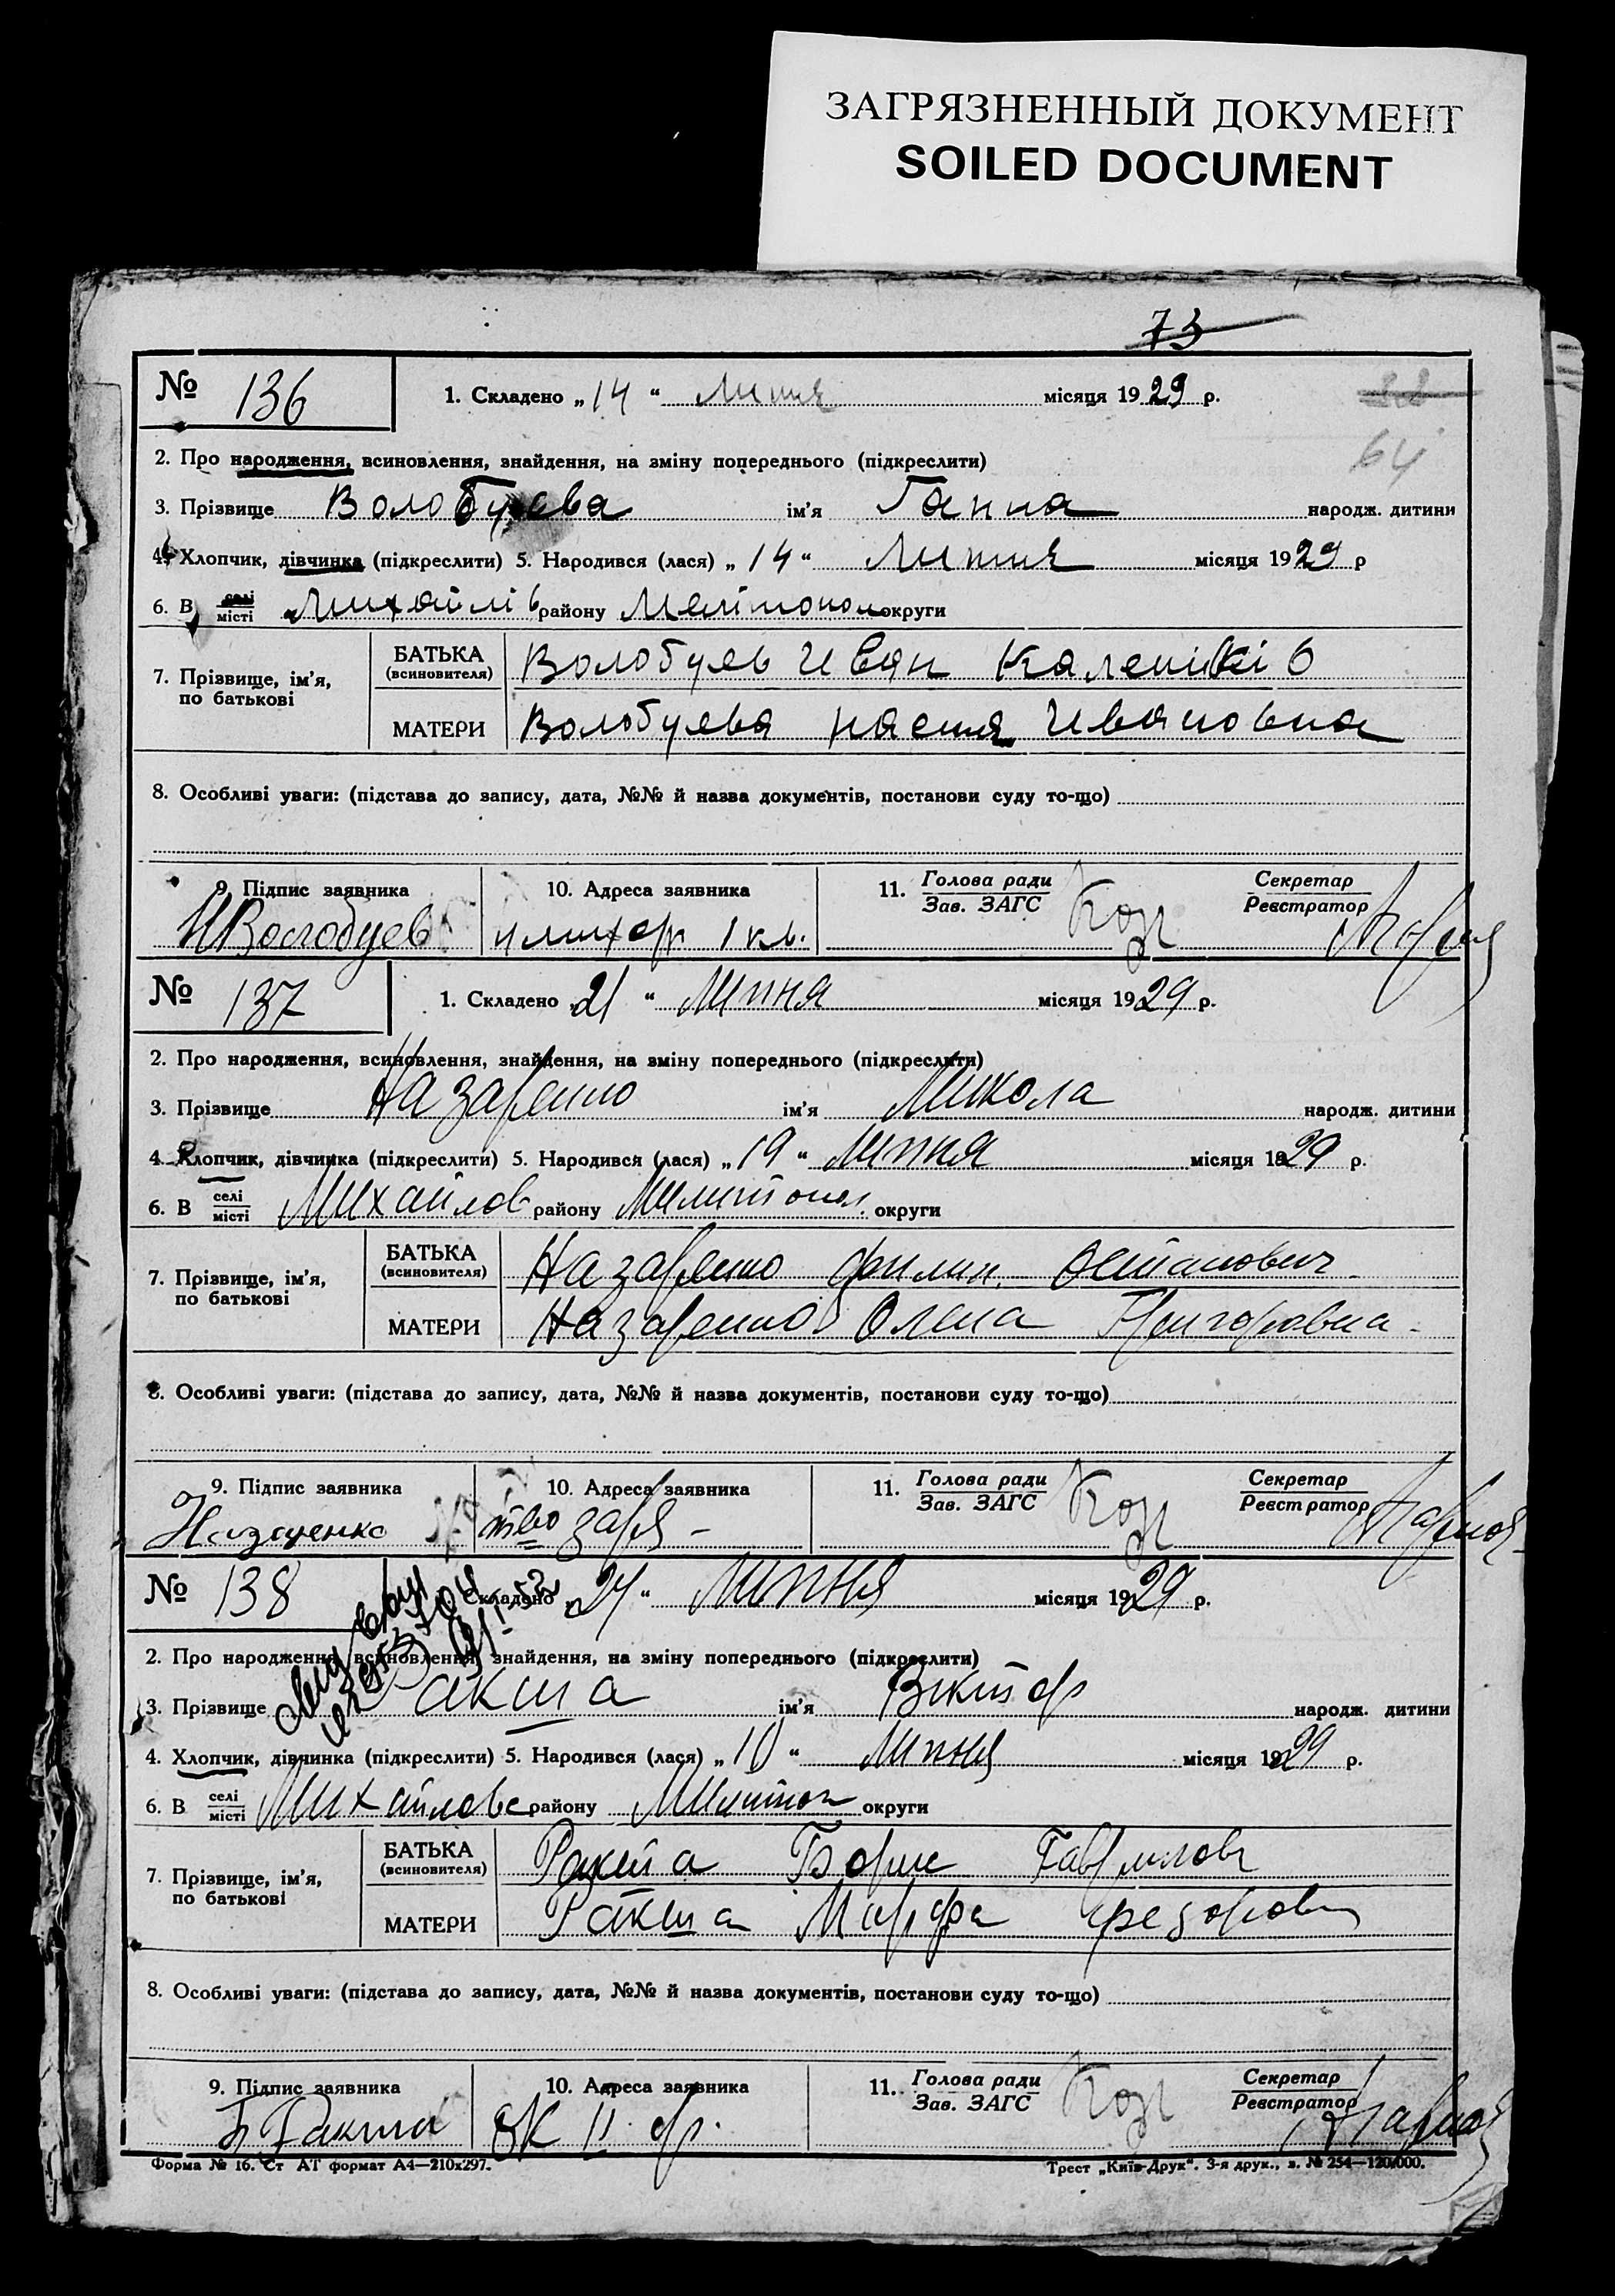 ЗАГРЯЗНЕННЫЙ ДОКУМЕНТ
SOILED DOCUMENT
73
64
№ 136 1. Складено „14“ Липня місяця 1929 р.
2. Про народження, всиновлення, знайдення, на зміну попереднього (підкреслити)
3. Прізвище Волобуєва ім'я Ганна народж. дитини
4. Хлопчик, дівчинка (підкреслити) 5. Народився (лася) „14“ Липня місяця 1929 р
6. В селі місті Михайлів району Мелітопол округи
7. Прізвище, ім'я, по батькові
БАТЬКА (всиновителя) Волобуев Иван
МАТЕРИ Волобуева настя Ивановна
8. Особливі уваги: (підстава до запису, дата, №№ й назва документів, постанови суду то-що)
9. Підпис заявника 10. Адреса заявника 11. Голова ради Зав. ЗАГС Секретар Реєстратор
ИВолобуев 1 кв.
№ 137 1. Складено „21“ Липня місяця 1929 р.
2. Про народження, всиновлення, знайдення, на зміну попереднього (підкреслити)
3. Прізвище Назаренко ім'я Микола народж. дитини
4. Хлопчик, дівчинка (підкреслити) 5. Народився (лася) „19“ Липня місяця 1929 р.
6. В селі місті Михайлов району Милитопол. округи
7. Прізвище, ім'я, по батькові
БАТЬКА (всиновителя) Назаренко Филип. Остапович
МАТЕРИ Назаренко Олена Григоровна
8. Особливі уваги: (підстава до запису, дата, №№ й назва документів, постанови суду то-що)
9. Підпис заявника 10. Адреса заявника 11. Голова ради Зав. ЗАГС Секретар Реєстратор
Назаренко тво заря
№ 138 1. Складено „24“ Липня місяця 1929 р.
2. Про народження, всиновлення, знайдення, на зміну попереднього (підкреслити)
3. Прізвище Ракша ім'я Віктор народж. дитини
4. Хлопчик, дівчинка (підкреслити) 5. Народився (лася) „10“ Липня місяця 1929 р.
6. В селі місті Михайлове району Милитоп округи
7. Прізвище, ім'я, по батькові
БАТЬКА (всиновителя) Ракша Борис Гаврилов
МАТЕРИ Ракша Марфа Федоровн
8. Особливі уваги: (підстава до запису, дата, №№ й назва документів, постанови суду то-що)
9. Підпис заявника 10. Адреса заявника 11. Голова ради Зав. ЗАГС Секретар Реєстратор
Б Ракша
Форма № 16. Ст АТ формат А4—210х297. Трест „Київ-Друк“. 3-я друк., з. № 254—120.000.